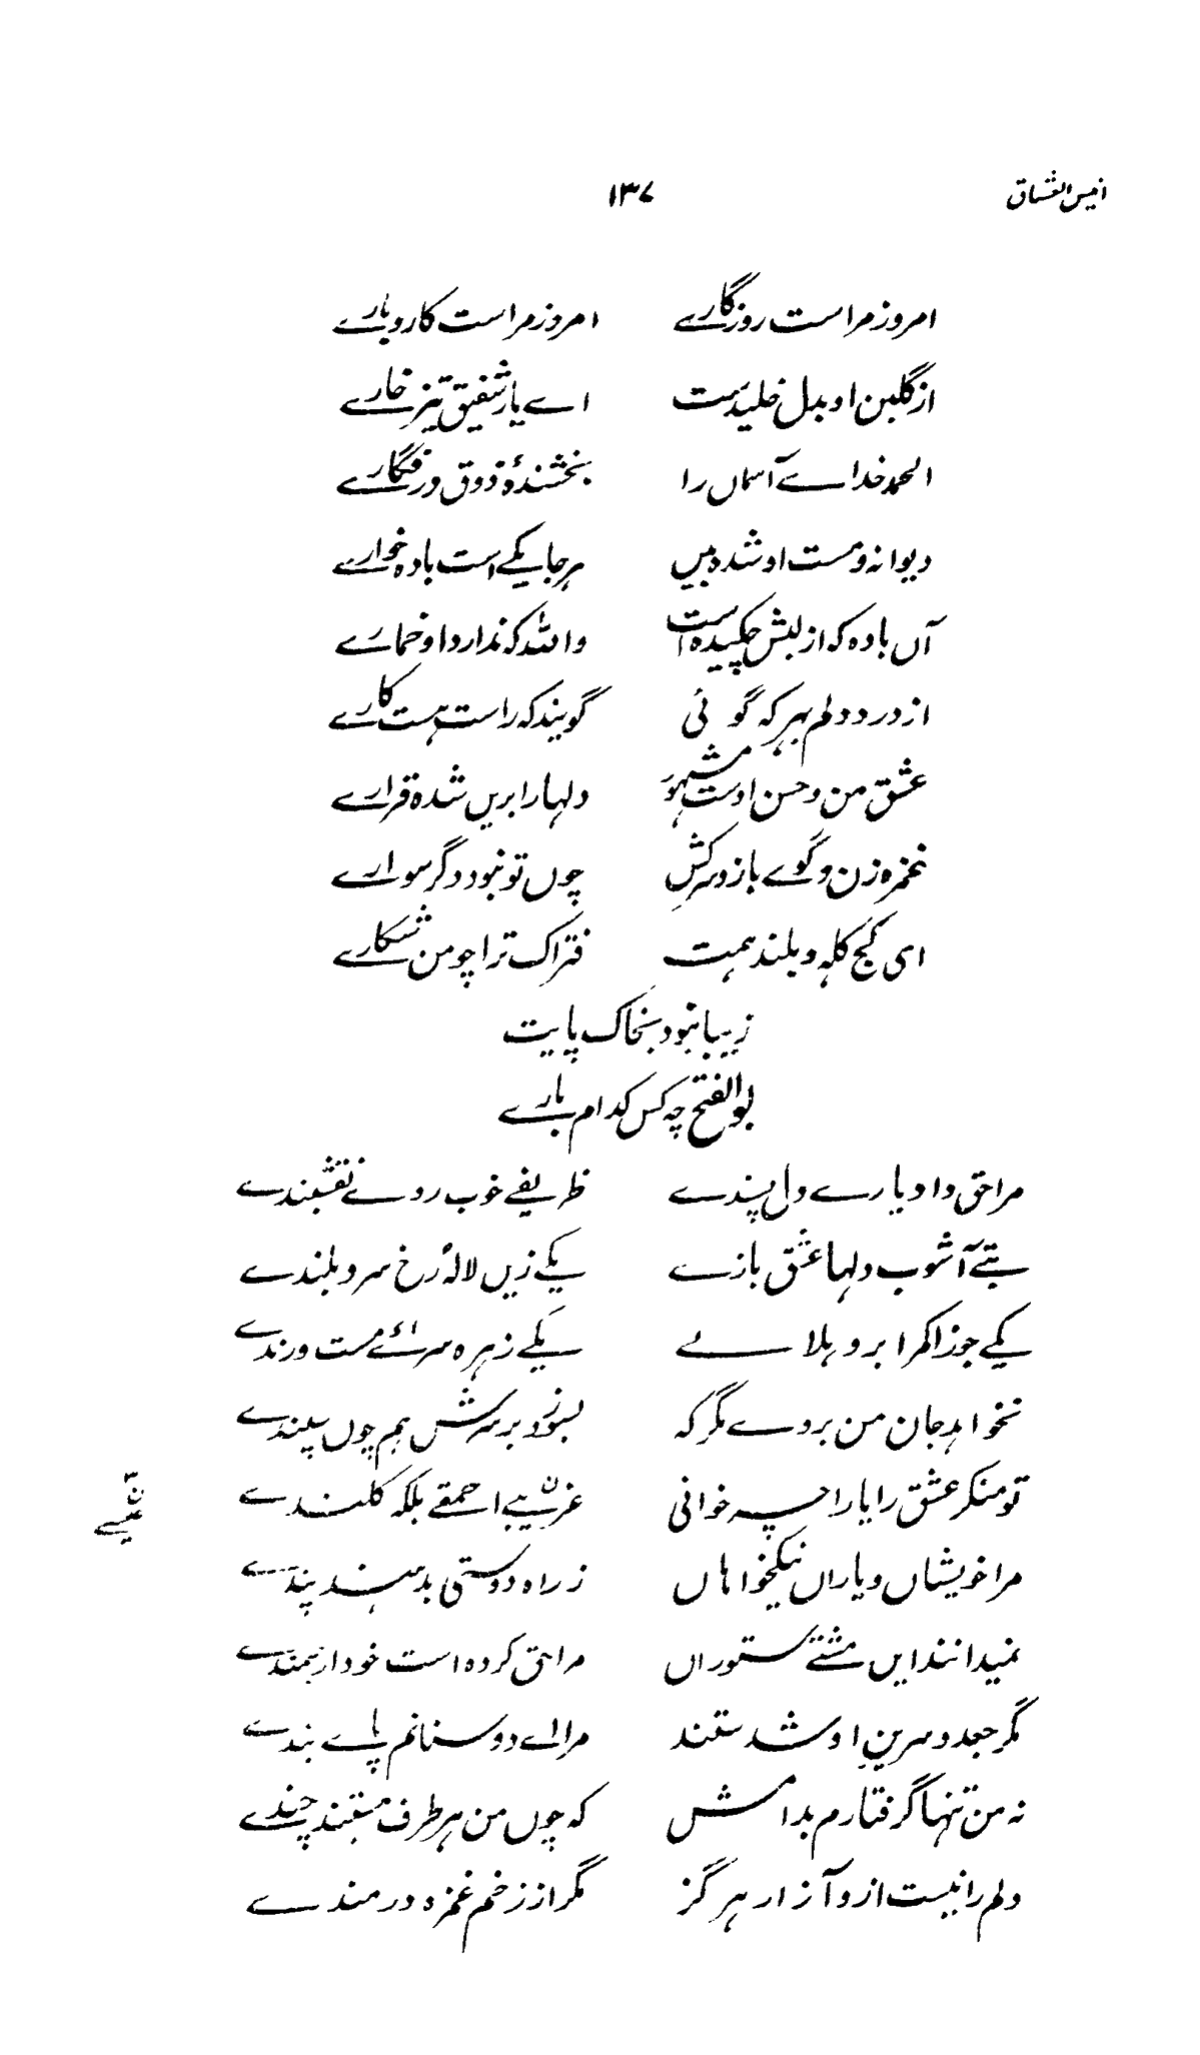 انیس العشاق ۱۳۷
امروز مراست روزگارے امروز مراست کاروبارے
از گلبن او بدل خلیدست اے یار شفیق تیز خارے
الحمد خداے آسماں را بخشندۂ ذوق درفگارے
دیوانہ و مست او شدہ بیں ہرجا یکے است بادہ خوارے
آں بادہ کہ از لبش چکیدہ است واللہ کہ ندارد او خمارے
از درد دلم بہر کہ گوئی گویند کہ راست ہست کارے
عشق من و حسن اوست مشہور دلہا را بریں شدہ قرارے
غمزہ زن و گوے باز و سرکش چوں تو نبود دگر سوارے
ای کج کلہ و بلند ہمت فتراک ترا چو من شکارے
زیبا نبود بخاک پایت
بوالفتح چہ کس کدام بارے
مرا حق داد یارے دل پسندے ظریفے خوب روے نقشبندے
بتے آشوب دلہا عشق بازے یکے زیں لالہ رخ سرو بلندے
یکے جوزا کمر ابرو ہلالے یکے زہرہ سرائے مست ورندے
نخواہد جان من بروے مگر کہ بسوزد بر سرش ہم چوں سپندے
تو منکر عشق را یارا چہ خوانی غریبے احمقے بلکہ کلندے
مرا خویشاں و یاراں نیکخواہاں ز راہ دوستی بدہند پندے
نمیدانند ایں مشتے ستوراں مرا حق کردہ است خود ارجمندے
مگر جعد و سرین او شدستند مرا اے دوستانم پاے بندے
نہ من تنہا گرفتارم بدامش کہ چوں من ہر طرف ہستند چندے
دلم را نیست ازو آزار ہرگز مگر از زخم غمزہ دردمندے